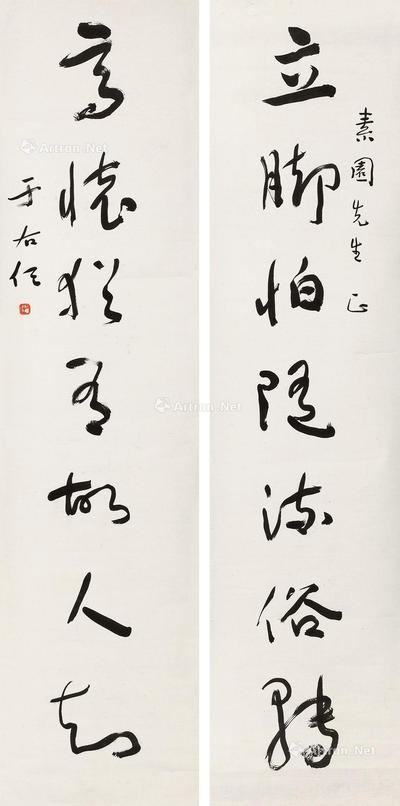 立脚怕随流俗转
素園先生正
高怀猶有故人知
于右任
Artron.Net
Artron.Net
Artron.Net
Artron.Net